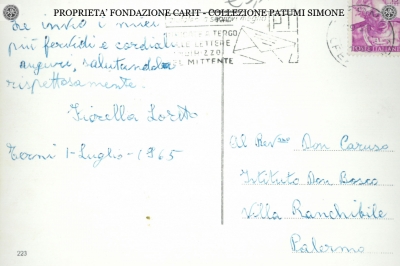 PROPRIETA' FONDAZIONE CARIT - COLLEZIONE PATUMI SIMONE
Le invio i miei
più fervidi e cordiali
auguri, salutandola
rispettosamente.
Fiorella Loretto
Terni 1-Luglio-1965
A TERGO
LETTERE
INDIRIZZO
DEL MITTENTE
POSTE ITALIANE
Al Rev.mo Don Caruso
Istituto Don Bosco
Villa Ranchibile
Palermo
223